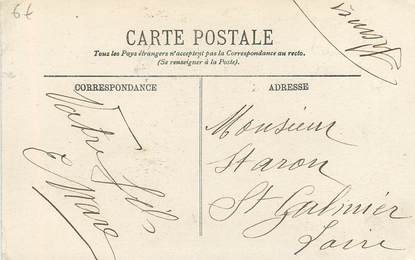 6€
CARTE POSTALE
Tous les Pays étrangers n'acceptent pas la Correspondance au recto.
(Se renseigner à la Poste).
CORRESPONDANCE
ADRESSE
Votre fils
Monsieur
Staron
St Galmier
Loire